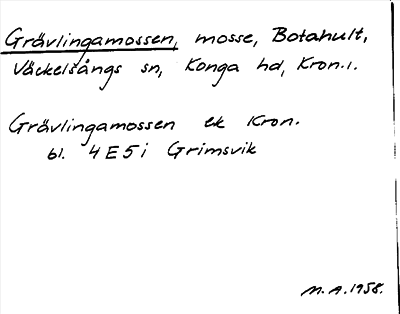 Grävlingamossen, mosse, Botahult,
Väckelsångs sn, Konga hd, Kron.l.
Grävlingamossen ek Kron.
bl. 4E5i Grimsvik
M.A.1958.